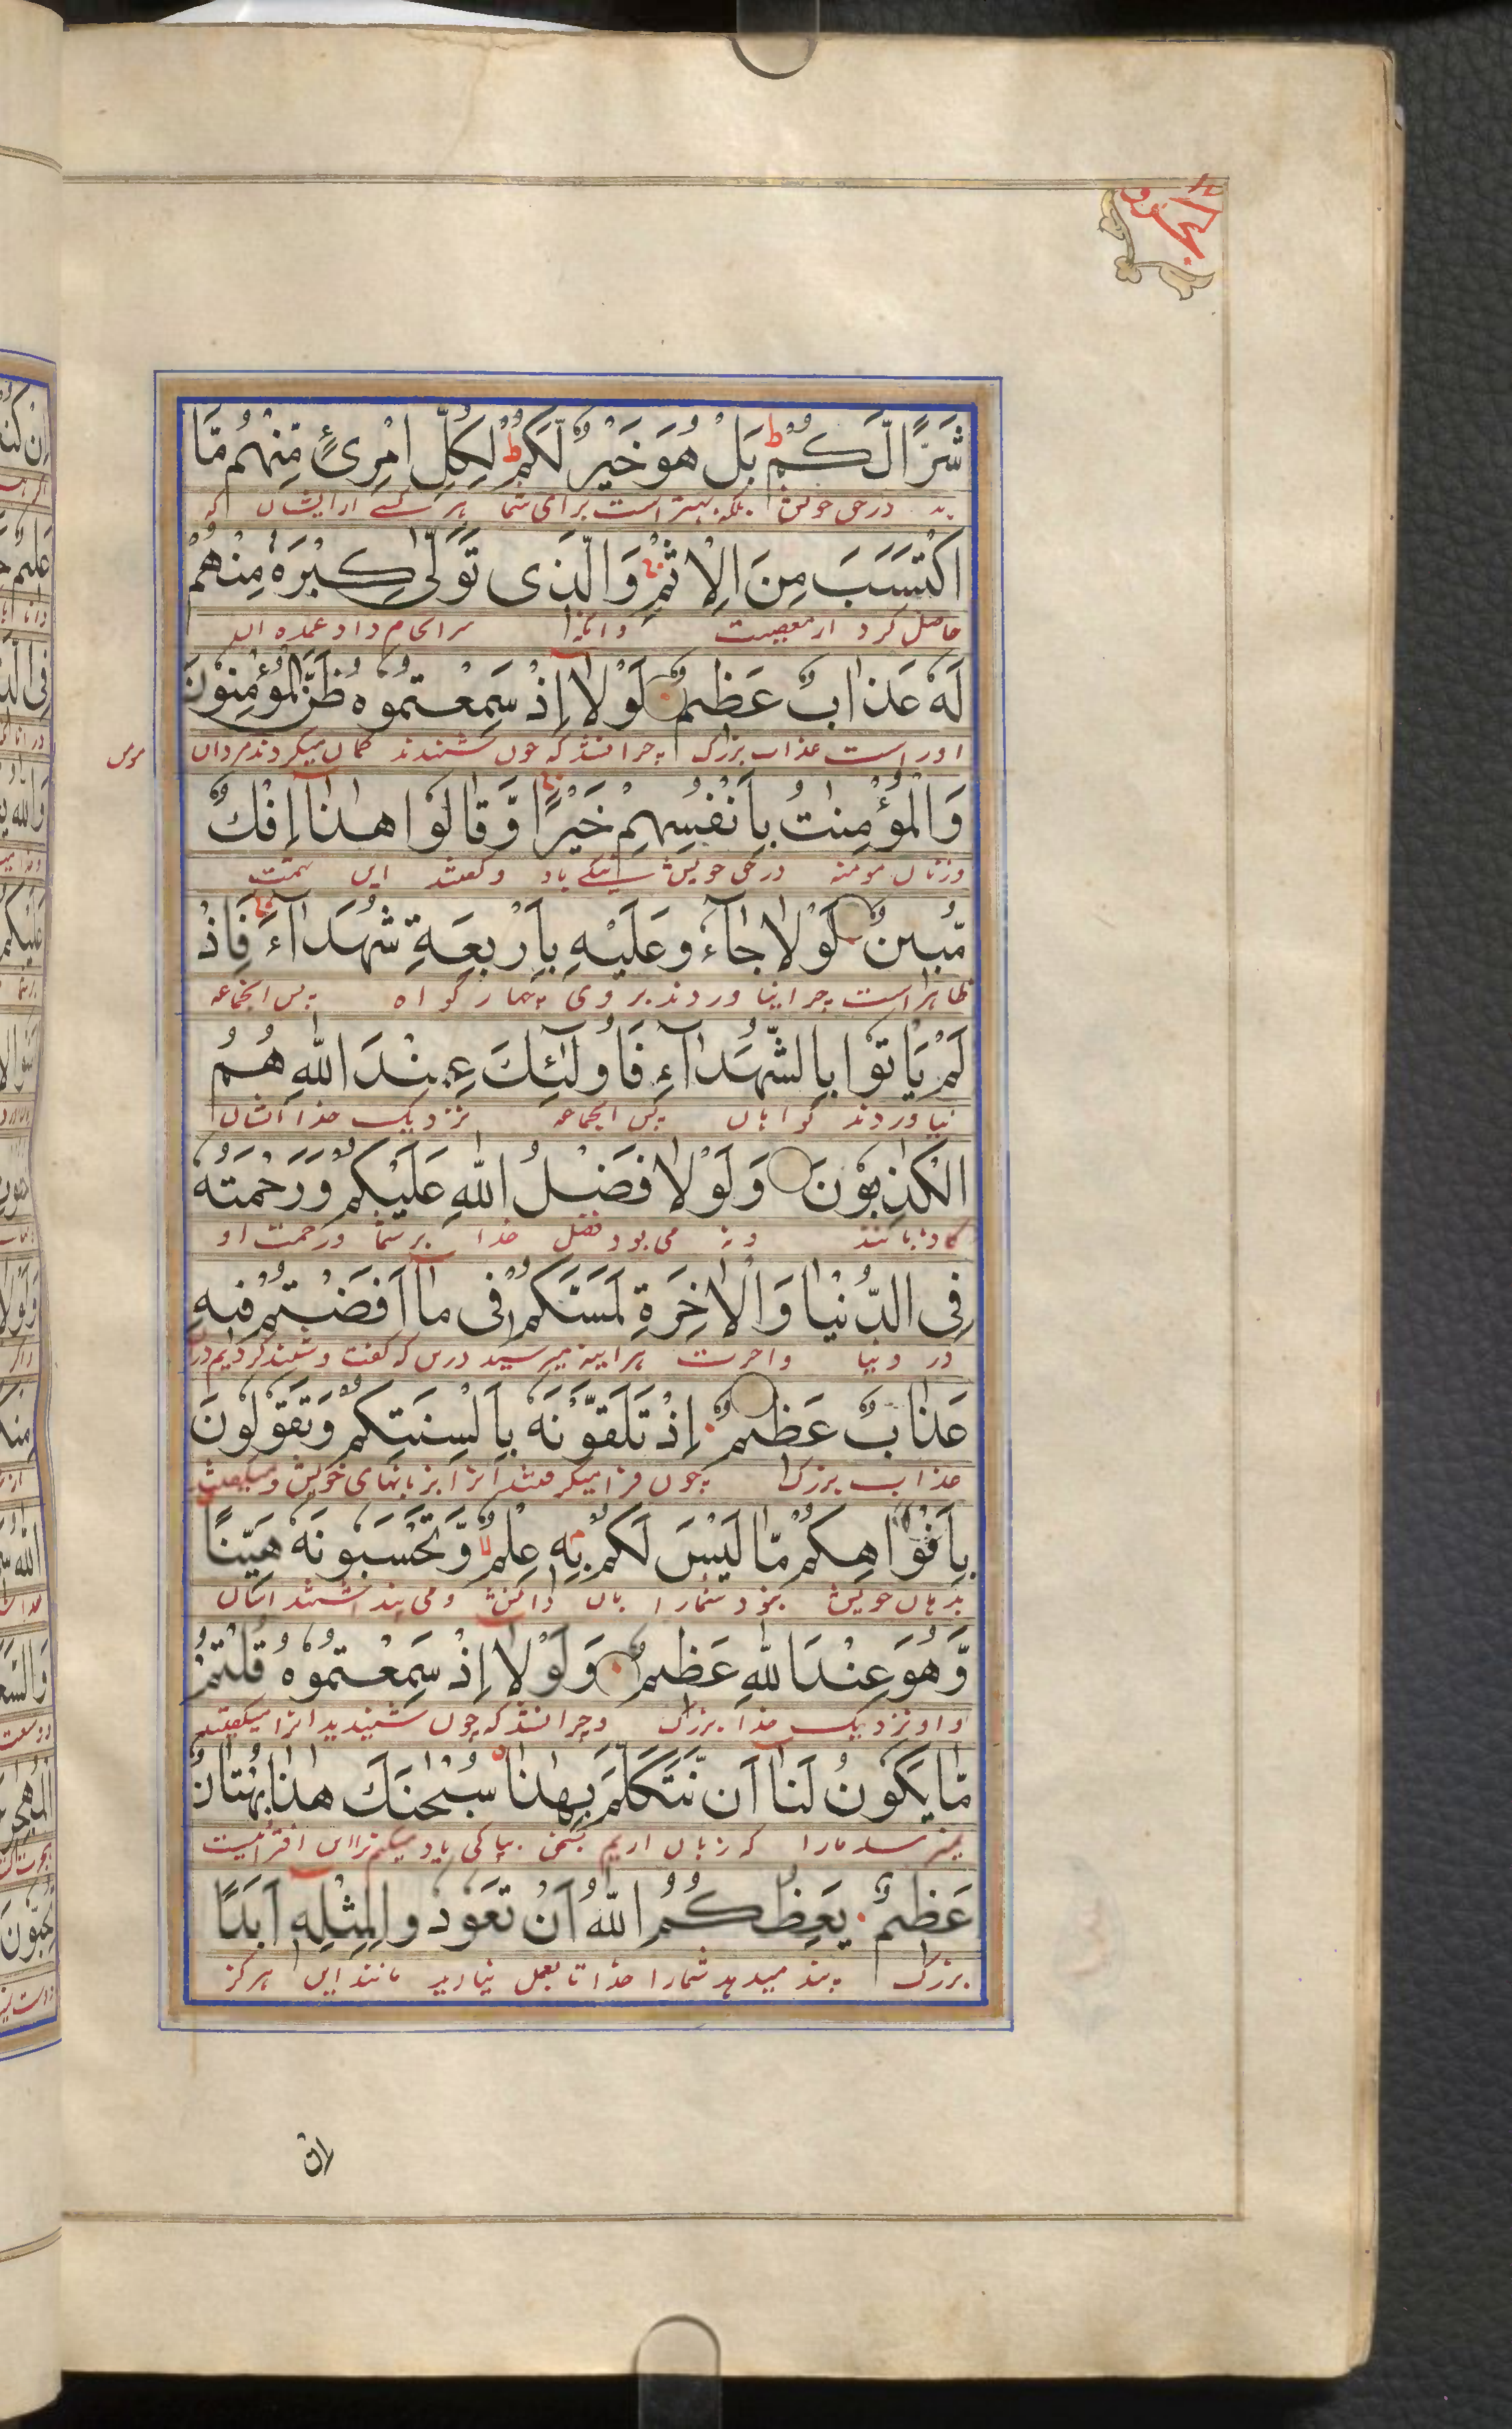 شَرًّا لَّكُمْ ط بَلْ هُوَ خَيْرٌ لَّكُمْ ط لِكُلِّ امْرِئٍ مِّنْهُم مَّا
بد در حق خویش بلکه بهتر است برای شما هر کسے از ایشان که
اكْتَسَبَ مِنَ الْاِثْمِ وَالَّذِی تَوَلّٰی كِبْرَهٗ مِنْهُمْ
حاصل کرد از معصیت و انکه سرانجام داد عمده
لَهٗ عَذَابٌ عَظِیْمٌ لَوْلَا اِذْ سَمِعْتُمُوهُ ظَنَّ الْمُؤْمِنُوْنَ
او راست عذاب بزرگ چرا نشد که چون شنیدند گمان میکردند مردان
وَالْمُؤْمِنٰتُ بِاَنْفُسِهِمْ خَيْرًا وَّقَالُوا هٰذَا اِفْكٌ
و زنان مومنه در حق خویش نیکے یاد و گفتند این تهمت
مُّبِینٌ لَوْلَا جَآءُو عَلَيْهِ بِاَرْبَعَةِ شُهَدَآءَ فَاِذْ
ظاهر است چرا نیاوردند بر وی چهار گواه پس انجماعه
لَمْ يَاْتُوا بِالشُّهَدَآءِ فَاُولٰٓئِكَ عِنْدَ اللّٰهِ هُمُ
نیاوردند گواهان پس انجماعه نزدیک خدا ایشان
الْكٰذِبُوْنَ وَلَوْلَا فَضْلُ اللّٰهِ عَلَيْكُمْ وَرَحْمَتُهٗ
می بود فضل خدا بر شما و رحمت او
فِی الدُّنْيَا وَالْاٰخِرَةِ لَمَسَّكُمْ فِی مَا اَفَضْتُمْ فِيهِ
در دنیا و اخرت هراینه میرسید
عَذَابٌ عَظِیمٌ اِذْ تَلَقَّوْنَهٗ بِاَلْسِنَتِكُمْ وَتَقُوْلُونَ
عذاب بزرگ چون فرا میگرفتند انرا بزبانهای خویش و میگفتند
بِاَفْوَاهِكُمْ مَّا لَيْسَ لَكُمْ بِهٖ عِلْمٌ وَّتَحْسَبُونَهٗ هَيِّنًا
بدهان خویش نبود شمارا بان دانش و می پنداشتند اسان
وَّهُوَ عِنْدَ اللّٰهِ عَظِیمٌ وَلَوْلَا اِذْ سَمِعْتُمُوهُ قُلْتُمْ
و او نزدیک خدا بزرگ و چرا نشد که چون شنیدید انرا میگفتید
مَّا يَكُوْنُ لَنَا اَن نَّتَكَلَّمَ بِهٰذَا سُبْحٰنَكَ هٰذَا بُهْتَانٌ
که زبان اریم بپاکی یاد میکنم ترا این افترائیست
عَظِیمٌ يَعِظُكُمُ اللّٰهُ اَنْ تَعُوْدُوا لِمِثْلِهٖ اَبَدًا
بزرگ پند میدهد شمارا خدا تا بعمل نیارید مانند این هرگز